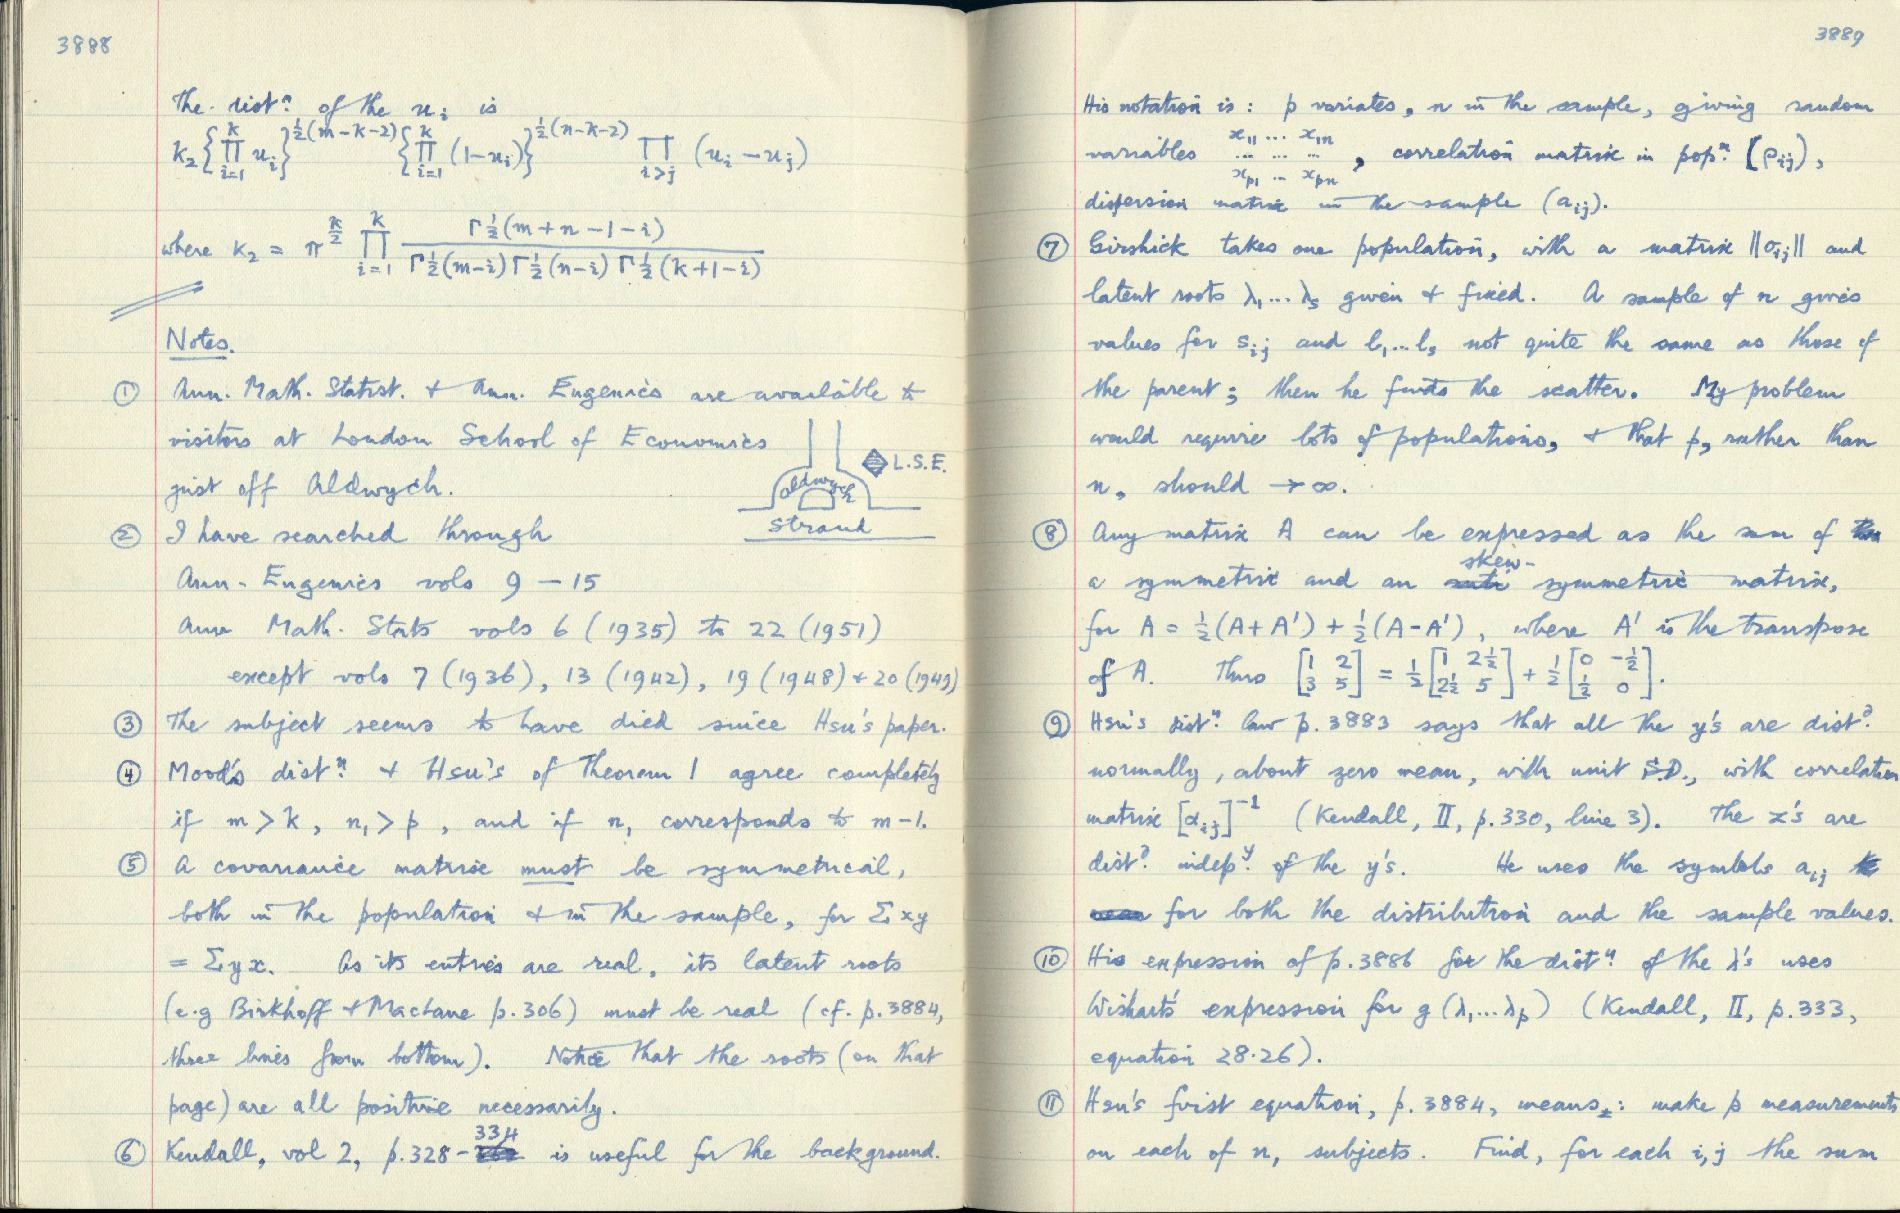 3888
The distⁿ of the uᵢ is
k₂ {∏ᵢ₌₁ᵏ uᵢ}^½(m-k-2) {∏ᵢ₌₁ᵏ (1-uᵢ)}^½(n-k-2) ∏ᵢ>ⱼ (uᵢ - uⱼ)
where k₂ = π^(k/2) ∏ᵢ₌₁ᵏ Γ½(m+n-1-i) / Γ½(m-i) Γ½(n-i) Γ½(k+1-i)
Notes.
① Ann. Math. Statist. & Ann. Eugenics are available to
visitors at London School of Economics
just off Aldwych.
L.S.E.
Aldwych
Strand
② I have searched through
Ann. Eugenics vols 9 – 15
Ann Math. Stats vols 6 (1935) to 22 (1951)
except vols 7 (1936), 13 (1942), 19 (1948) & 20 (1949)
③ The subject seems to have died since Hsu's paper.
④ Mood's distⁿ & Hsu's of Theorem 1 agree completely
if m > k, n₁ > p, and if n₁ corresponds to m-1.
⑤ A covariance matrix must be symmetrical,
both in the population & in the sample, for Σxy
= Σyx. As its entries are real, its latent roots
(e.g Birkhoff & Maclane p. 306) must be real (cf. p. 3884,
three lines from bottom). Notice that the roots (on that
page) are all positive necessarily.
⑥ Kendall, vol 2, p. 328 - 334 is useful for the background.
3889
His notation is: p variates, n in the sample, giving random
variables x₁₁ ... x₁ₙ ... ... ... xₚ₁ ... xₚₙ, correlation matrix in popⁿ [ρᵢⱼ),
dispersion matrix in the sample (aᵢⱼ).
⑦ Girshick takes one population, with a matrix ||σᵢⱼ|| and
latent roots λ₁...λₛ given & fixed. A sample of n gives
values for sᵢⱼ and l₁...lₛ not quite the same as those of
the parent; then he finds the scatter. My problem
would require lots of populations, & that p, rather than
n, should → ∞.
⑧ Any matrix A can be expressed as the sum of
a symmetric and an skew-symmetric matrix,
for A = ½(A+A') + ½(A-A'), where A' is the transpose
of A. Thus [1 2; 3 5] = ½[1 2½; 2½ 5] + ½[0 -½; ½ 0].
⑨ Hsu's distⁿ law p. 3883 says that all the y's are distᵈ
normally, about zero mean, with unit S.D., with correlation
matrix [αᵢⱼ]⁻¹ (Kendall, II, p. 330, line 3). The z's are
distᵈ indepʸ of the y's. He uses the symbols aᵢⱼ
for both the distribution and the sample values.
⑩ His expression of p. 3886 for the distⁿ of the λ's uses
Wishart's expression for g(λ₁...λₚ) (Kendall, II, p. 333,
equation 28.26).
⑪ Hsu's first equation, p. 3884, means: make p measurements
on each of n₁ subjects. Find, for each i, j the sum